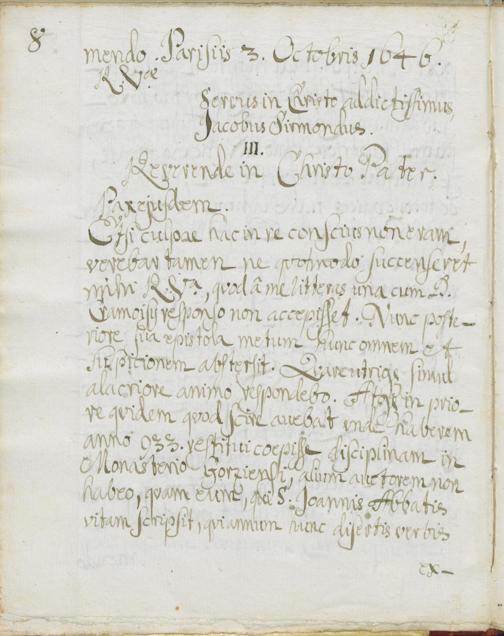 8
mendo. Parisiis 3. Octobris 1646.
R. Væ
Servus in Christo addictissimus,
Jacobus Sirmondus.
III.
Reverende in Christo Pater.
Pax ejusdem.
Etsi culpae hac in re conscius non eram,
verebar tamen ne quomodo succenseret
mihi R. Vª, quod à me litteras una cum D.
Cramoisij responso non accepisset. Nunc poste-
riore sua epistola metum hunc omnem et
suspicionem abstersit. Quare utrique simul
alacriore animo respondebo. Atque in prio-
re quidem quod scire avebat unde haberem
anno 933. restitui coepisse disciplinam in
Monasterio Gorziensi, alium auctorem non
habeo, quam eum, qui S. Joannis Abbatis
vitam scripsit, qui annum hunc disertis verbis
ex-